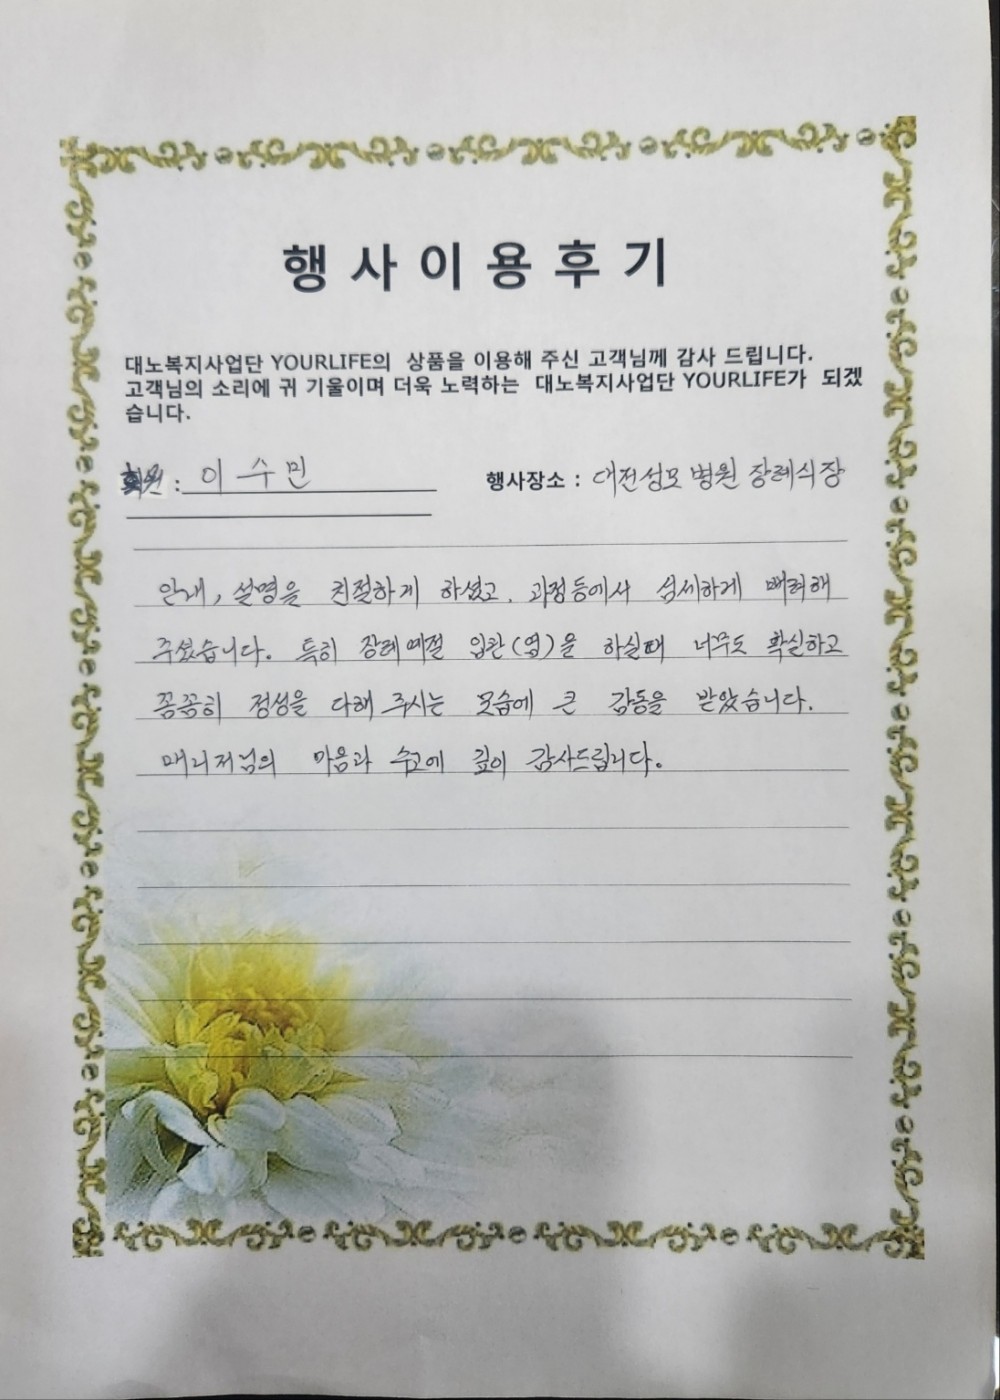 행사이용후기
대노복지사업단 YOURLIFE의 상품을 이용해 주신 고객님께 감사 드립니다.
고객님의 소리에 귀 기울이며 더욱 노력하는 대노복지사업단 YOURLIFE가 되겠
습니다.
회원 : 이수민 행사장소 : 대전성모병원 장례식장
안내, 설명을 친절하게 하셨고, 과정등에서 섬세하게 배려해
주셨습니다. 특히 장례예절 입관(염)을 하실때 너무도 확실하고
꼼꼼히 정성을 다해 주시는 모습에 큰 감동을 받았습니다.
매니저님의 마음과 수고에 깊이 감사드립니다.